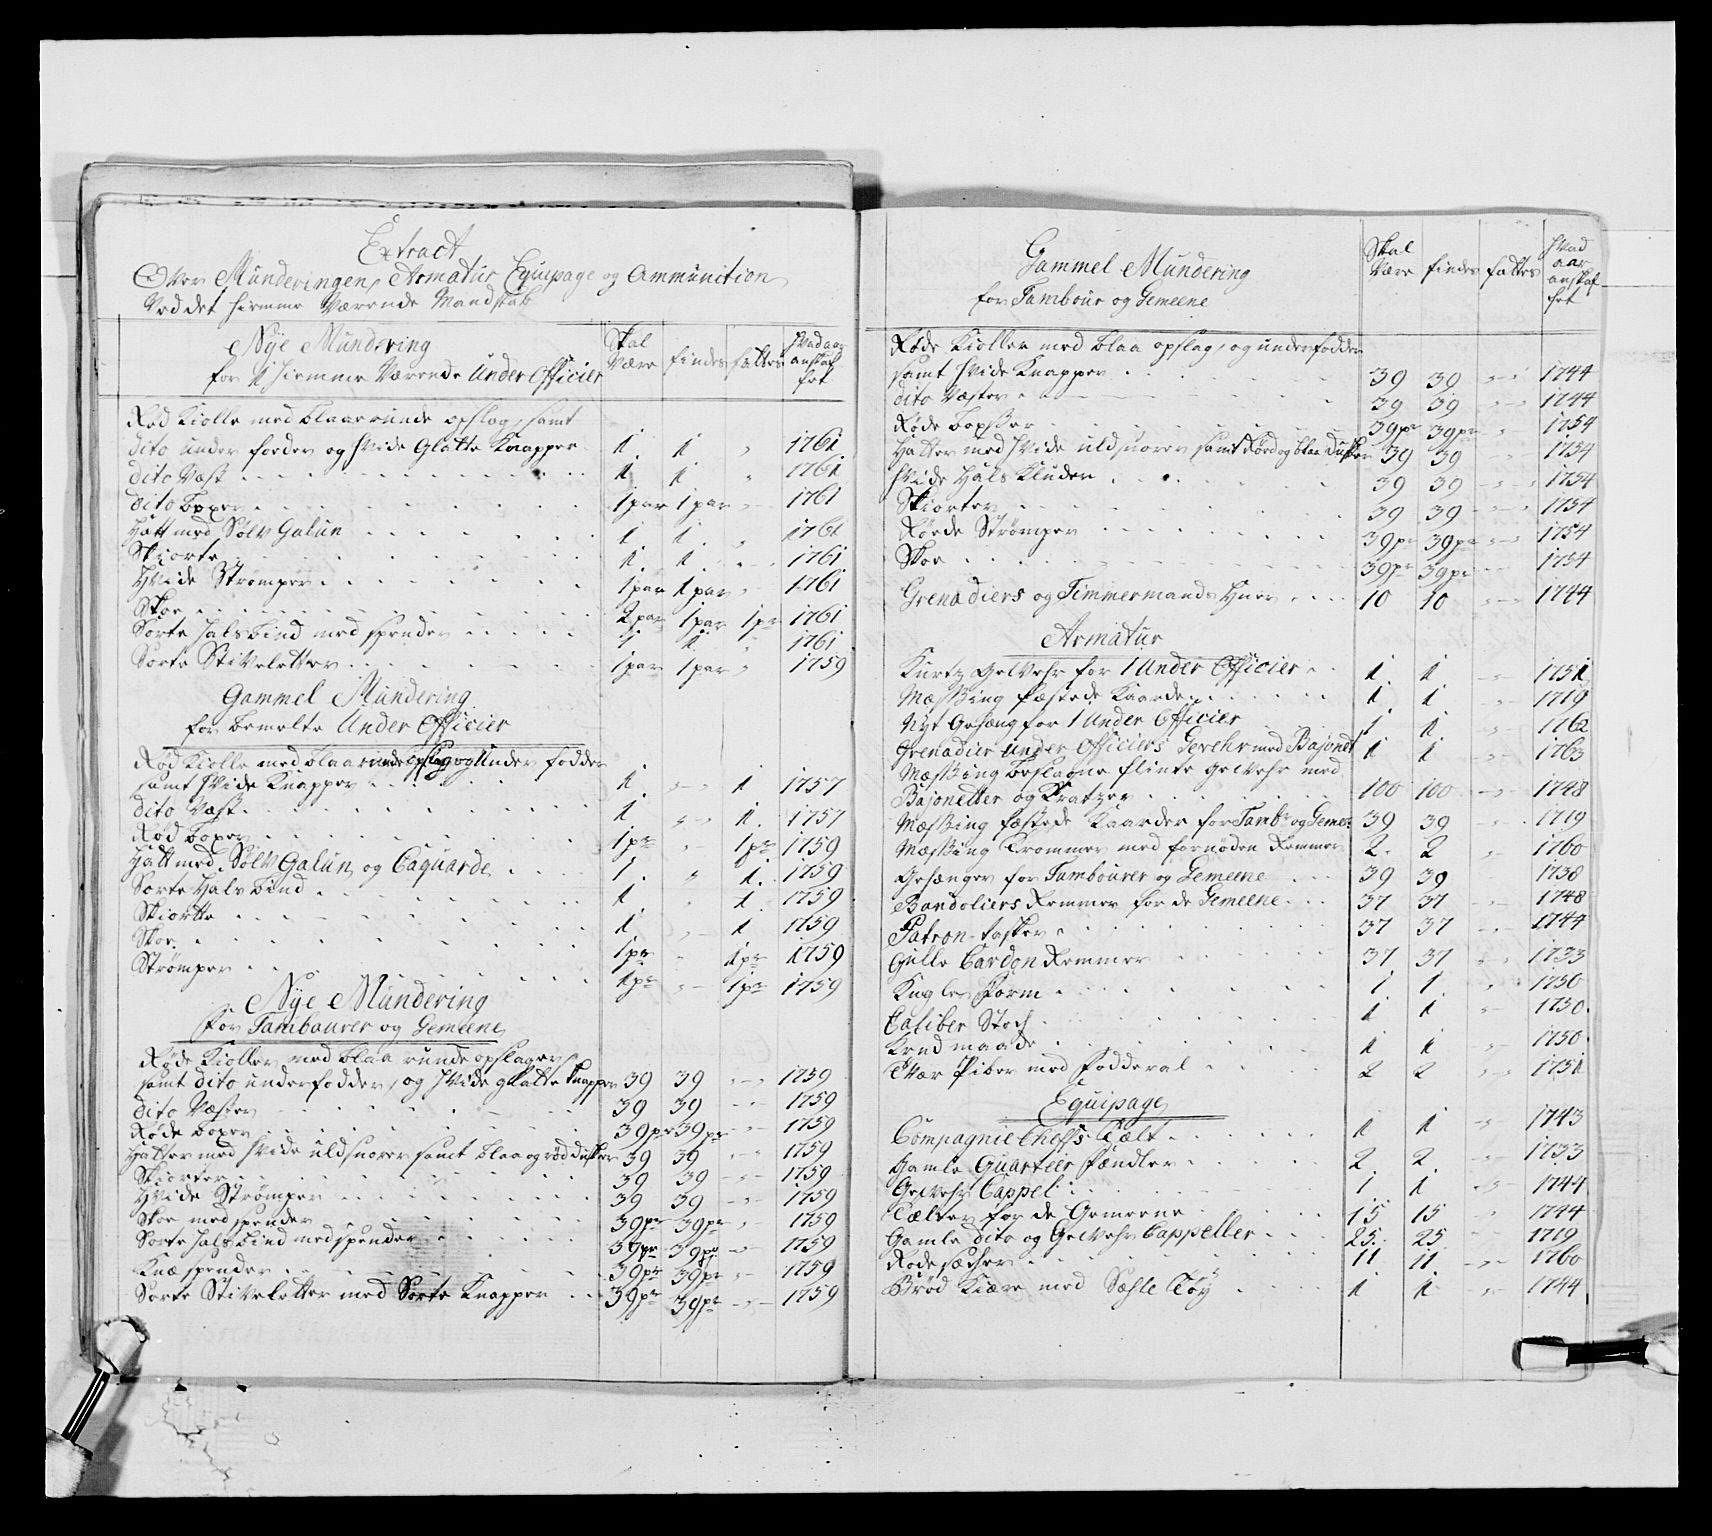 Extract
Over Munderingen, Armatur Equipage og Ammunition
Ved det hiemme Værende Mandskab
Nye Mundering
for 1 hiemme Værende Under Officier
Skal Være
findes
fattes
hvad aar anskaffet
Rød Kiolle med blaa runde opslag, samt
dito under foeder og hvide Glatte Knapper 1. 1 " 1761
dito Væst 1 1 " 1761
dito Boxer 1 par 1 par " 1761
Hatt med Sølv Galun 1 1. " 1761
Skiorte 1. 1. " 1761
Hvide Strømper 1 par 1 par " 1761
Skoe 2 par 1 par 1 pr 1761
Sorte hals bind med spender 1 1. " 1761
Sorte Stiveletter 1 par 1 par " 1759
Gammel Mundering
for bemelte Under Officier
Rød Kiolle med blaa runde opslag og Under fodder
samt hvide Knapper 1. " 1 1757
dito Væst 1 " 1. 1757
Rød boxer 1 pr " 1 pr 1759
Hatt med Sølv Galun og Caquarde 1. " 1. 1759
Sorte Hals bind 1. " 1 1759
Skiortte 1. " 1 1759
Skoe 1 pr " 1 pr 1759
Strømper 1 pr " 1 pr 1759
Nye Mundering
for Tambourer og Gemeene
Røde Kioller med blaa runde opslager
samt dito underfodder, og hvide glatte Knapper 39 39 " 1759
dito Væster 39 39 " 1759
Røde boxer 39 pr 39 pr " 1759
Hatter med hvide uldsnorer samt blaa og rød dusker 39 39 " 1759
Skiorter 39 39 " 1759
Hvide Strømper 39 39 " 1759
Skoe med spender 39 pr 39 pr " 1759
Sorte hals bind med spender 39 pr 39 pr " 1759
Knæ spender 39 pr 39 pr " 1759
Sorte Stiveletter med Sorte Knapper 39 pr 39 pr " 1759
Gammel Mundering
for Tambour og Gemeene
Skal Være
findes
fattes
hvad aar anskaffet
Røde Kioller med blaa opslag, og underfodder
samt hvide Knapper 39 39 " 1744
dito Væster 39 39 " 1744
Røde boxser 39 pr 39 pr " 1754
Hatter med hvide uldsnorer samt Rød og blaa Dusker 39 39 " 1754
hvide Hals Kluder 39 39 " 1754
Skiorter 39 39 " 1754
Røede Strømper 39 pr 39 pr " 1754
Skoe 39 pr 39 pr " 1754
Grenadiers og Timmermands Huer 10 10 " 1744
Armatur
Kurtz Gevehr for 1 Under Officier 1. 1. " 1751
Mæssing fæstede Kaarder 1 1 " 1719
Nyt Gehæng for 1 Under Officier 1. 1. " 1762
Grenadier Under Officiers Gevehr med Bajonet 1 1 " 1763
Mæssing beslagne flinte Gevehr med
Bajonetter og Kratzer 100 100 " 1748
Mæssing fæstede Kaarder for Tambr og Gemee: 39 39 " 1719
Mæssing Trommer med fornøden Remmer 2. 2 " 1760
Gehænger for Tambourer og Gemeene 39 39 1738
Bandoliers Remmer for de Gemeene 37 37 " 1748
Patron tasker 37 37 " 1744
Gulle Cardon Remmer 37 37 " 1733
Kugle Form 1 1. " 1750
Caliber Stoch 1 1 " 1750.
Krud maade 1 1 " 1750.
Tvær Piber med Fodderal 2 2 " 1751
Equipage
Compagnie Cheffs Tælt 1 1 " 1743
Gamle Quarteer Fændler 2. 2. " 1733
Gevehr Cappel 1 1 " 1744
Tælter for de Gemeene 15 15 " 1744
Gamle dito og Gevehr Cappeller 25. 25 " 1719
Rode sæcher 11 11 " 1760
Brød Kiære med Sæhle Tøy 1 1 " 1744